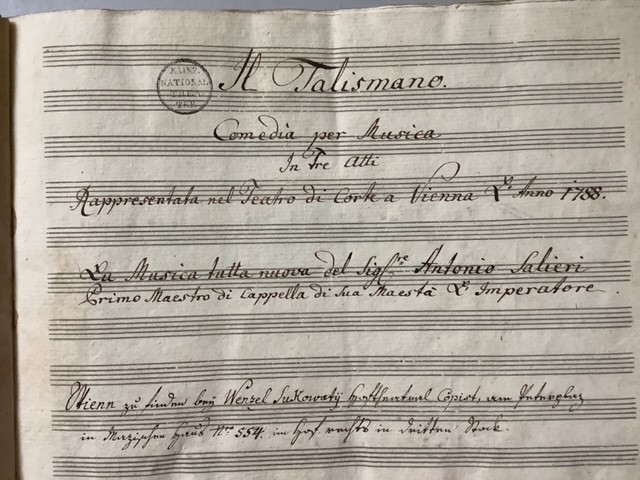 MAINZ.
NATIONAL
THEA
TER
Il Talismano.
Comedia per Musica
In Tre Atti
Rappresentata nel Teatro di Corte a Vienna L'Anno 1788.
La Musica tutta nuova del Sigre Antonio Salieri
Primo Maestro di Cappella di Sua Maestà L'Imperatore.
Wienn zu finden beÿ Wenzel Sukowatÿ Hoftheatral Copist, am Petersplaz
in Haus No 554. im Hof rechts in dritten Stock.